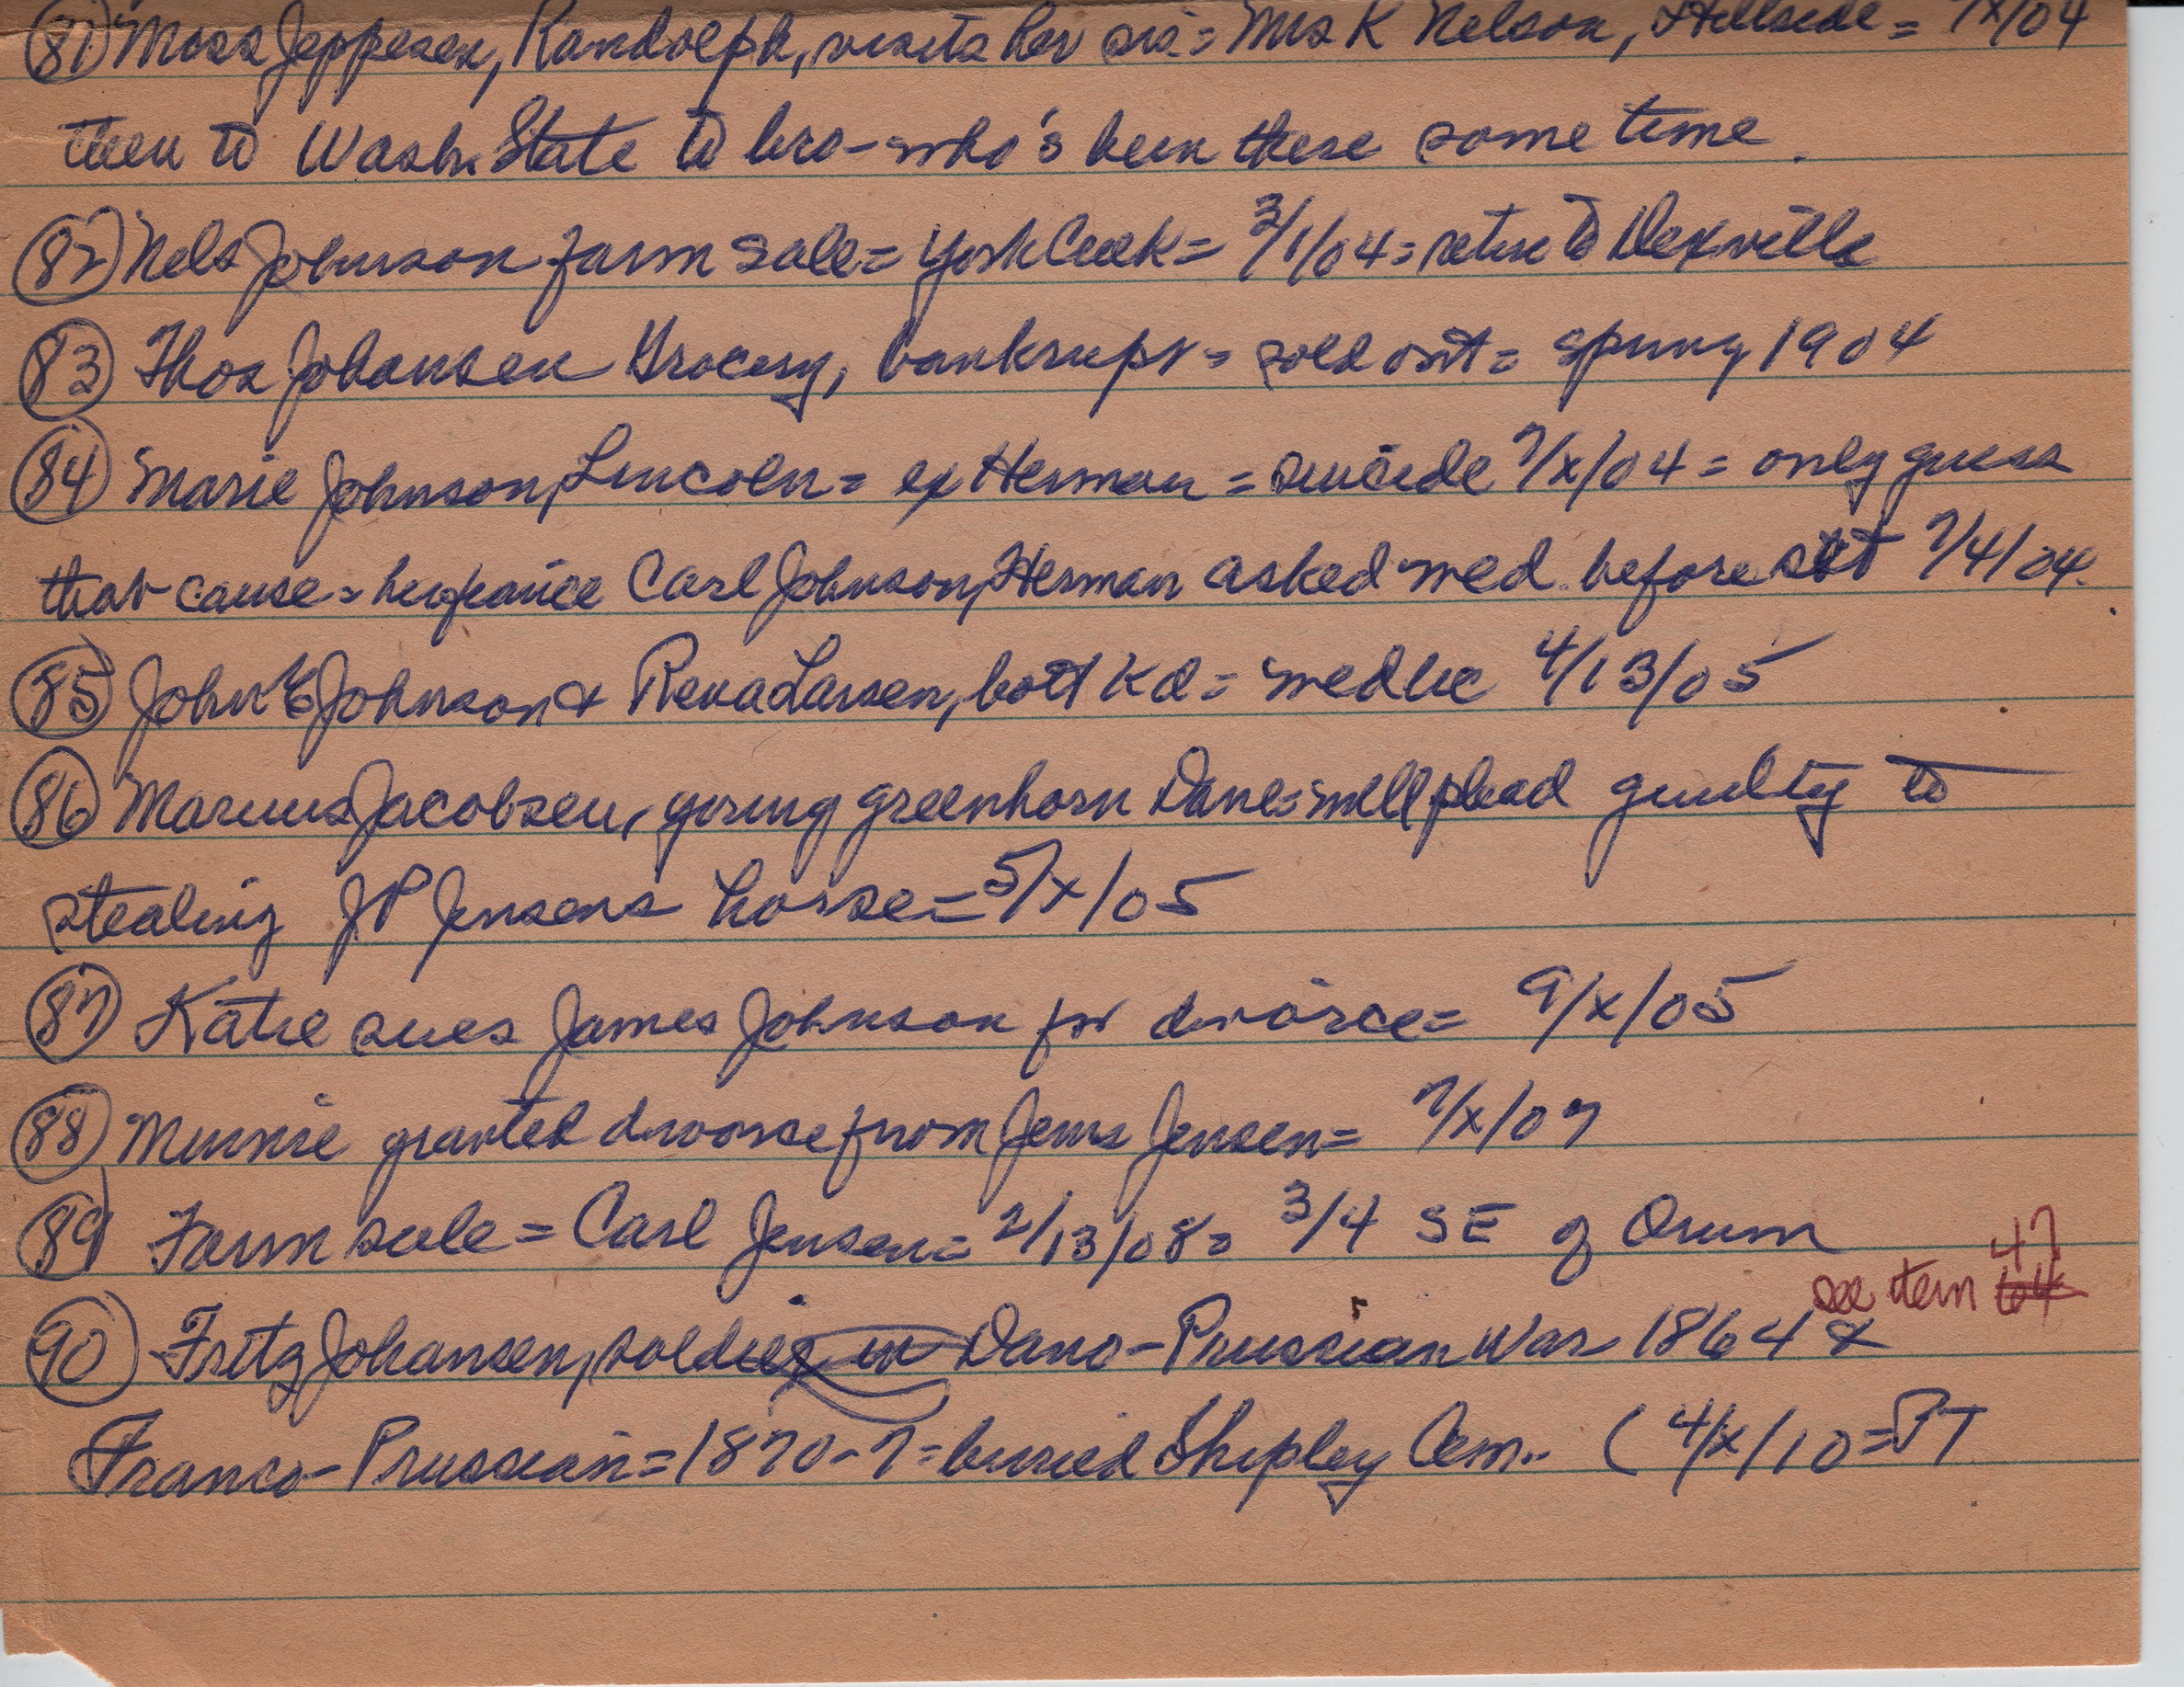 (81) Miss Jeppesen, Randolph, visits her sis = Mrs K Nelson, Hillside = 7x/04
then to Wash. State to bro - who's been there some time.
(82) Nels Johnson farm sale = York Creek = 3/1/04 = retire to
(83) Thos Johansen Grocery, bankrupt = sold out = spring 1904
(84) Marie Johnson, Lincoln = ex Herman = suicide 7/x/04 = only guess
that cause = her fiance Carl Johnson, Herman asked wed. before set 7/4/04.
(85) John E Johnson & Rena Larsen, both Kd = wed lic 4/13/05
(86) Marius Jacobsen, young greenhorn Dane = will plead guilty to
stealing JP Jensens horse = 5/x/05
(87) Katie sues James Johnson for divorce = 9/x/05
(88) Minnie granted divorce from Jens Jensen = 7/x/07
(89) Farm sale = Carl Jensen = 2/13/08 = 3/4 SE of Orum
see item 64 47
(90) Fritz Johansen, soldier in Dano-Prussian War 1864 &
Franco-Prussian = 1870-7 = buried Shipley Cem.. ( 4/x/10 = PT